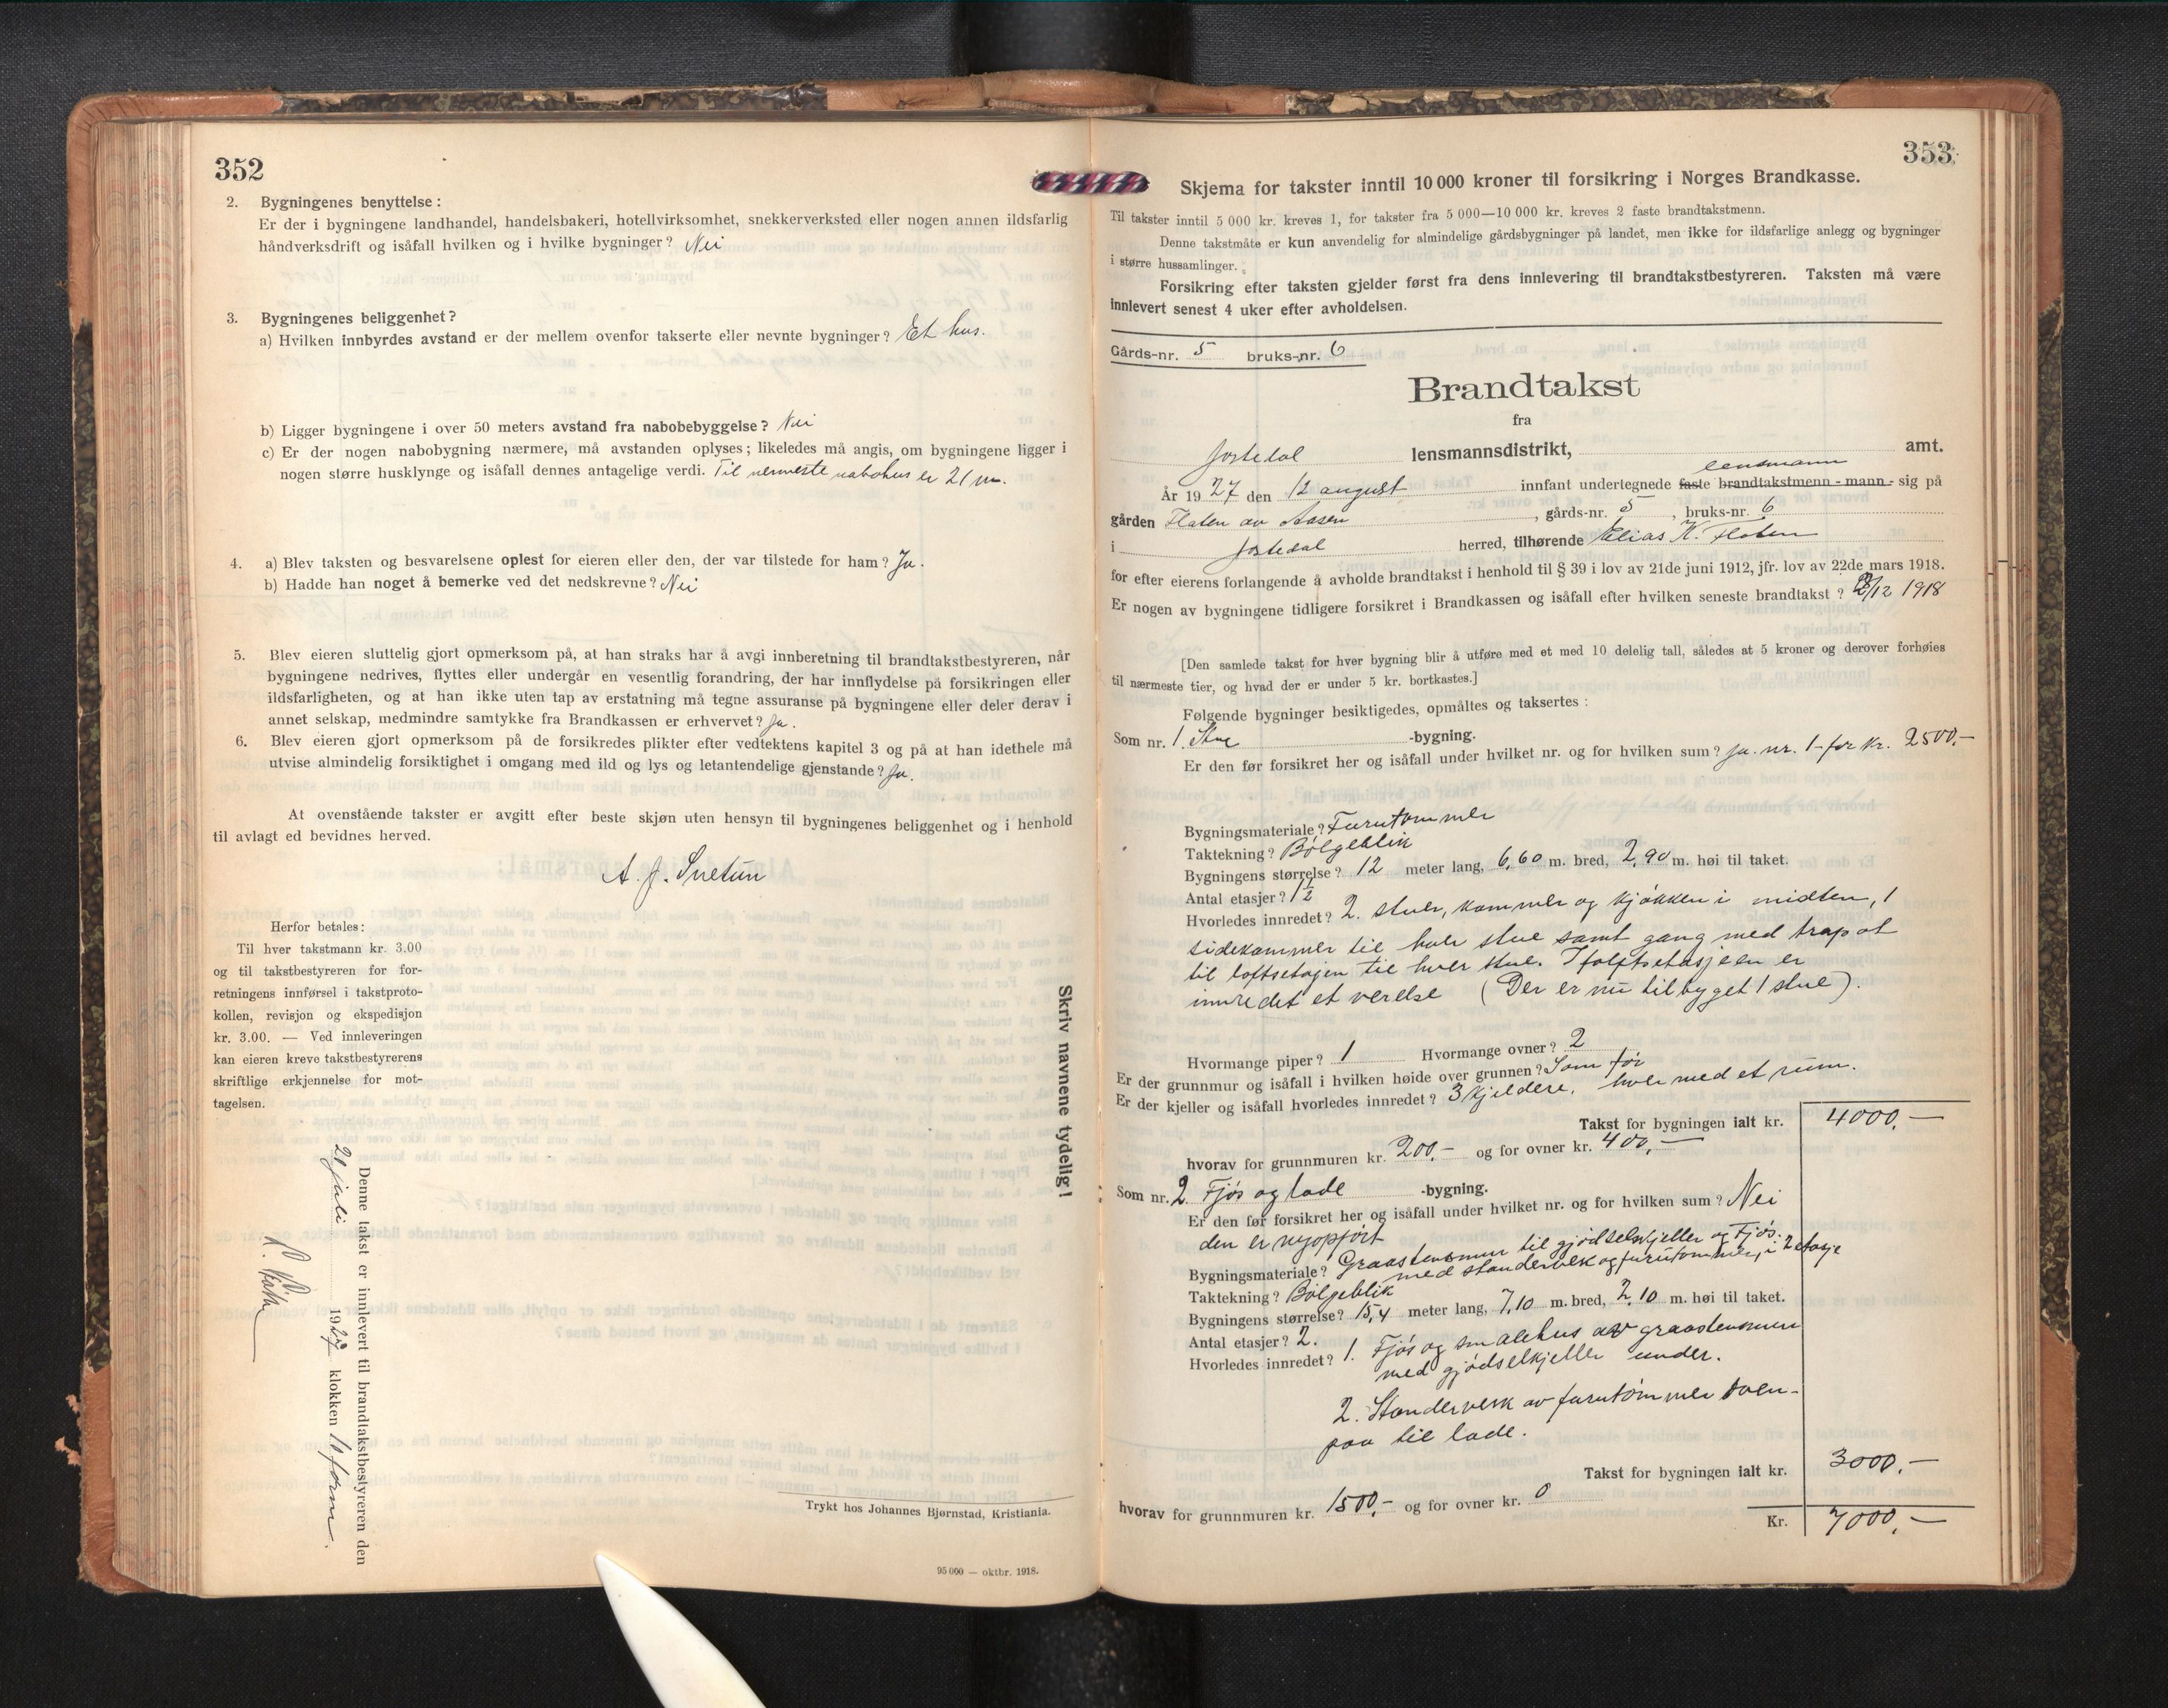 352
2. Bygningenes benyttelse:
Er der i bygningene landhandel, handelsbakeri, hotellvirksomhet, snekkerverksted eller nogen annen ildsfarlig
håndverksdrift og isåfall hvilken og i hvilke bygninger? Nei
3. Bygningenes beliggenhet?
a) Hvilken innbyrdes avstand er der mellem ovenfor takserte eller nevnte bygninger? Et hus.
b) Ligger bygningene i over 50 meters avstand fra nabobebyggelse? Nei
c) Er der nogen nabobygning nærmere, må avstanden oplyses; likeledes må angis, om bygningene ligger i
nogen større husklynge og isåfall dennes antagelige verdi. Til nermeste nabohus er 21 m.
4. a) Blev taksten og besvarelsene oplest for eieren eller den, der var tilstede for ham? Ja.
b) Hadde han noget å bemerke ved det nedskrevne? Nei
5. Blev eieren sluttelig gjort opmerksom på, at han straks har å avgi innberetning til brandtakstbestyreren, når
bygningene nedrives, flyttes eller undergår en vesentlig forandring, der har innflydelse på forsikringen eller
ildsfarligheten, og at han ikke uten tap av erstatning må tegne assuranse på bygningene eller deler derav i
annet selskap, medmindre samtykke fra Brandkassen er erhvervet? Ja.
6. Blev eieren gjort opmerksom på de forsikredes plikter efter vedtektens kapitel 3 og på at han idethele må
utvise almindelig forsiktighet i omgang med ild og lys og letantendelige gjenstande? Ja.
At ovenstående takster er avgitt efter beste skjøn uten hensyn til bygningenes beliggenhet og i henhold
til avlagt ed bevidnes herved.
A. J. Snetun
Herfor betales:
Til hver takstmann kr. 3.00
og til takstbestyreren for for-
retningens innførsel i takstproto-
kollen, revisjon og ekspedisjon
kr. 3.00. — Ved innleveringen
kan eieren kreve takstbestyrerens
skriftlige erkjennelse for mot-
tagelsen.
Skriv navnene tydelig!
Denne takst er innlevert til brandtakstbestyreren den
21 juli 1927 klokken 10 form.
Trykt hos Johannes Bjørnstad, Kristiania.
95 000 — oktbr. 1918.
353
Skjema for takster inntil 10 000 kroner til forsikring i Norges Brandkasse.
Til takster inntil 5 000 kr. kreves 1, for takster fra 5 000—10 000 kr. kreves 2 faste brandtakstmenn.
Denne takstmåte er kun anvendelig for almindelige gårdsbygninger på landet, men ikke for ildsfarlige anlegg og bygninger
i større hussamlinger.
Forsikring efter taksten gjelder først fra dens innlevering til brandtakstbestyreren. Taksten må være
innlevert senest 4 uker efter avholdelsen.
Gårds-nr. 5 bruks-nr. 6
Brandtakst
fra
Jostedal lensmannsdistrikt, amt.
lensmann
År 1927 den 12 august innfant undertegnede faste brandtakstmenn - mann - sig på
gården Flaten av Aasen, gårds-nr. 5, bruks-nr. 6
i Jostedal herred, tilhørende Elias K. Flaten
for efter eierens forlangende å avholde brandtakst i henhold til § 39 i lov av 21de juni 1912, jfr. lov av 22de mars 1918.
Er nogen av bygningene tidligere forsikret i Brandkassen og isåfall efter hvilken seneste brandtakst? /12 1918
[Den samlede takst for hver bygning blir å utføre med et med 10 delelig tall, således at 5 kroner og derover forhøies
til nærmeste tier, og hvad der er under 5 kr. bortkastes.]
Følgende bygninger besiktigedes, opmåltes og taksertes:
Som nr. 1. Stue -bygning.
Er den før forsikret her og isåfall under hvilket nr. og for hvilken sum? Ja. nr. 1 - for kr. 2500,-
Bygningsmateriale? Furutømmer
Taktekning? Bølgeblik
Bygningens størrelse? 12 meter lang, 6,60 m. bred, 2,90 m. høi til taket.
Antal etasjer? 1½
Hvorledes innredet? 2. stuer, kammer og kjøkken i midten, 1
sidekammer til hver stue samt gang med trap ot
til loftsetagen til hver stue. I loftsetasjeen er
innredet et verelse (Der er nu tilbyget 1 stue).
Hvormange piper? 1 Hvormange ovner? 2
Er der grunnmur og isåfall i hvilken høide over grunnen? Som før
Er der kjeller og isåfall hvorledes innredet? 3 kjeldere, hver med et rum.
Takst for bygningen ialt kr. 4000,-
hvorav for grunnmuren kr. 200,- og for ovner kr. 400,-
Som nr. 2 Fjøs og lade -bygning.
Er den før forsikret her og isåfall under hvilket nr. og for hvilken sum? Nei
den er nyopført
Bygningsmateriale? Graastensmur til gjødselkjeller og Fjøs.
med standerverk og furutømmer, i 2 etasje
Taktekning? Bølgeblik
Bygningens størrelse? 15,4 meter lang, 7,10 m. bred, 2,10 m. høi til taket.
Antal etasjer? 2.
Hvorledes innredet? 1. Fjøs og smalehus av graastensmur
med gjødselkjeller under.
2. Standerverk av furutømmer oven-
paa til lade.
Takst for bygningen ialt kr. 3000,-
hvorav for grunnmuren kr. 1500,- og for ovner kr. 0
Kr. 7000,-